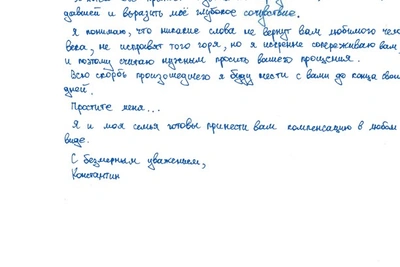 давшей и выразить моё глубокое сочувствие.
Я понимаю, что никакие слова не вернут вам любимого чело
века, не исправят того горя, но я искренне сопереживаю вам,
и поэтому считаю нужным просить вашего прощения.
Всю скорбь произошедшего я буду нести с вами до конца своих
дней.
Простите меня...
Я и моя семья готовы принести вам компенсацию в любом
виде.
С безмерным уважением,
Константин